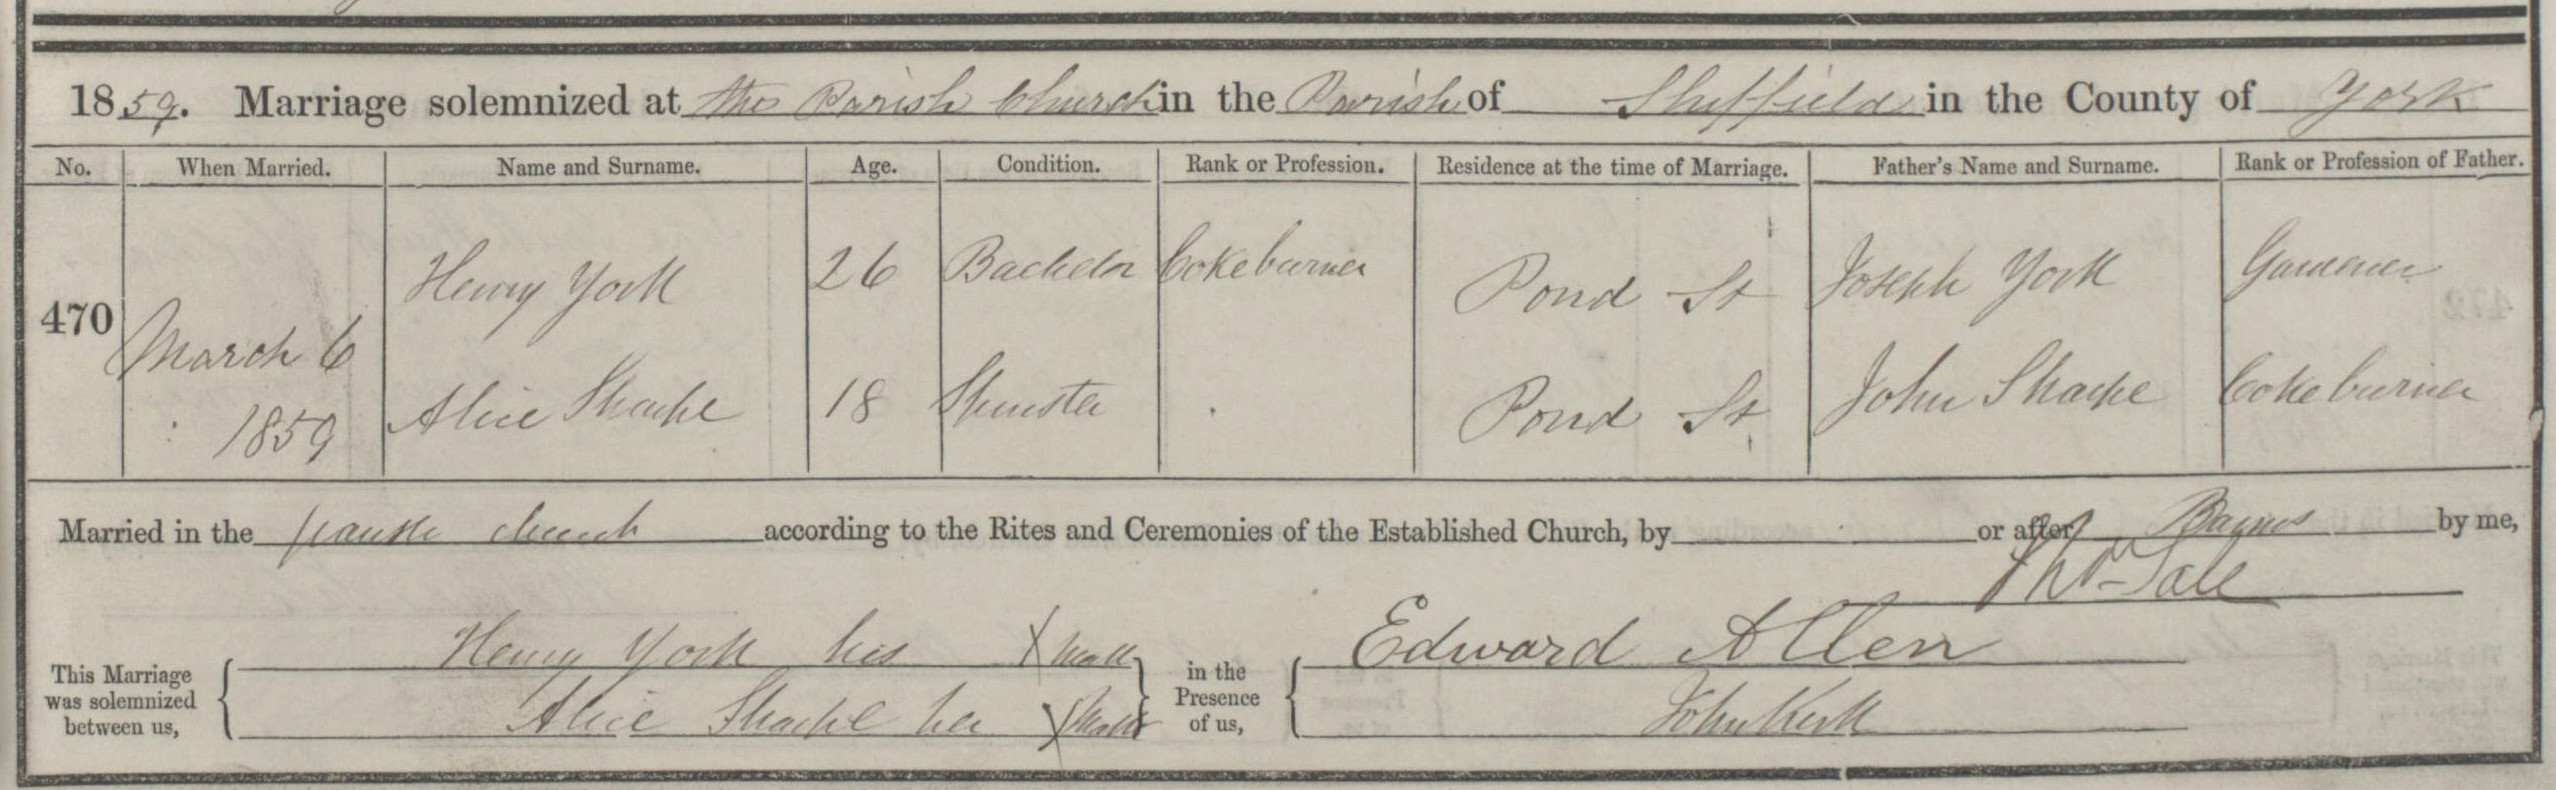 1859. Marriage solemnized at the Parish Church in the Parish of Sheffield in the County of York
No. When Married. Name and Surname. Age. Condition. Rank or Profession. Residence at the time of Marriage. Father's Name and Surname. Rank or Profession of Father.
Henry York 26 Bachelor Cokeburner Pond St Joseph York Gardener
470
March 6
1859 Alice Sharpe 18 Spinster Pond St John Sharpe Cokeburner
Married in the parish church according to the Rites and Ceremonies of the Established Church, by or after Banns by me,
Thos Sale
This Marriage was solemnized between us, Henry York his X mark in the Presence of us, Edward Allen
Alice Sharpe her X mark John Kirk